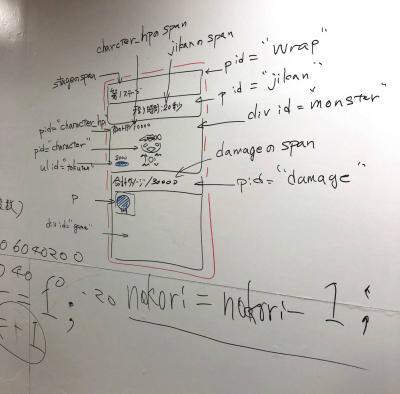 charcter_hpn span
jikan n span
stagenspan
p id = "wrap"
第1ステージ
p id = "jikan"
残り時間:20秒
div id = "monster"
pid="character_hp
10000
pid="character"
ul id="tokuten"
damage n span
/30000
pid= "damage"
P
div id="game"
0 6 0 4 0 2 0 0
0 4 0
20 nokori = nokori - 1 ;